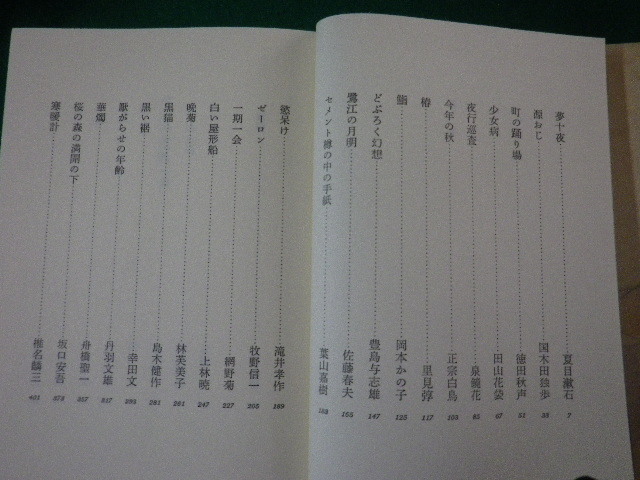 夢十夜 夏目漱石 7
源おじ 国木田独歩 33
町の踊り場 徳田秋声 51
少女病 田山花袋 67
夜行巡査 泉鏡花 85
今年の秋 正宗白鳥 103
椿 里見弴 117
鮨 岡本かの子 125
どぶろく幻想 豊島与志雄 147
鷺江の月明 佐藤春夫 155
セメント樽の中の手紙 葉山嘉樹 183
慾呆け 滝井孝作 189
ゼーロン 牧野信一 205
一期一会 網野菊 227
白い屋形船 上林暁 247
晩菊 林芙美子 261
黒猫 島木健作 281
黒い裾 幸田文 295
厭がらせの年齢 丹羽文雄 317
華燭 舟橋聖一 357
桜の森の満開の下 坂口安吾 373
寒暖計 椎名麟三 401